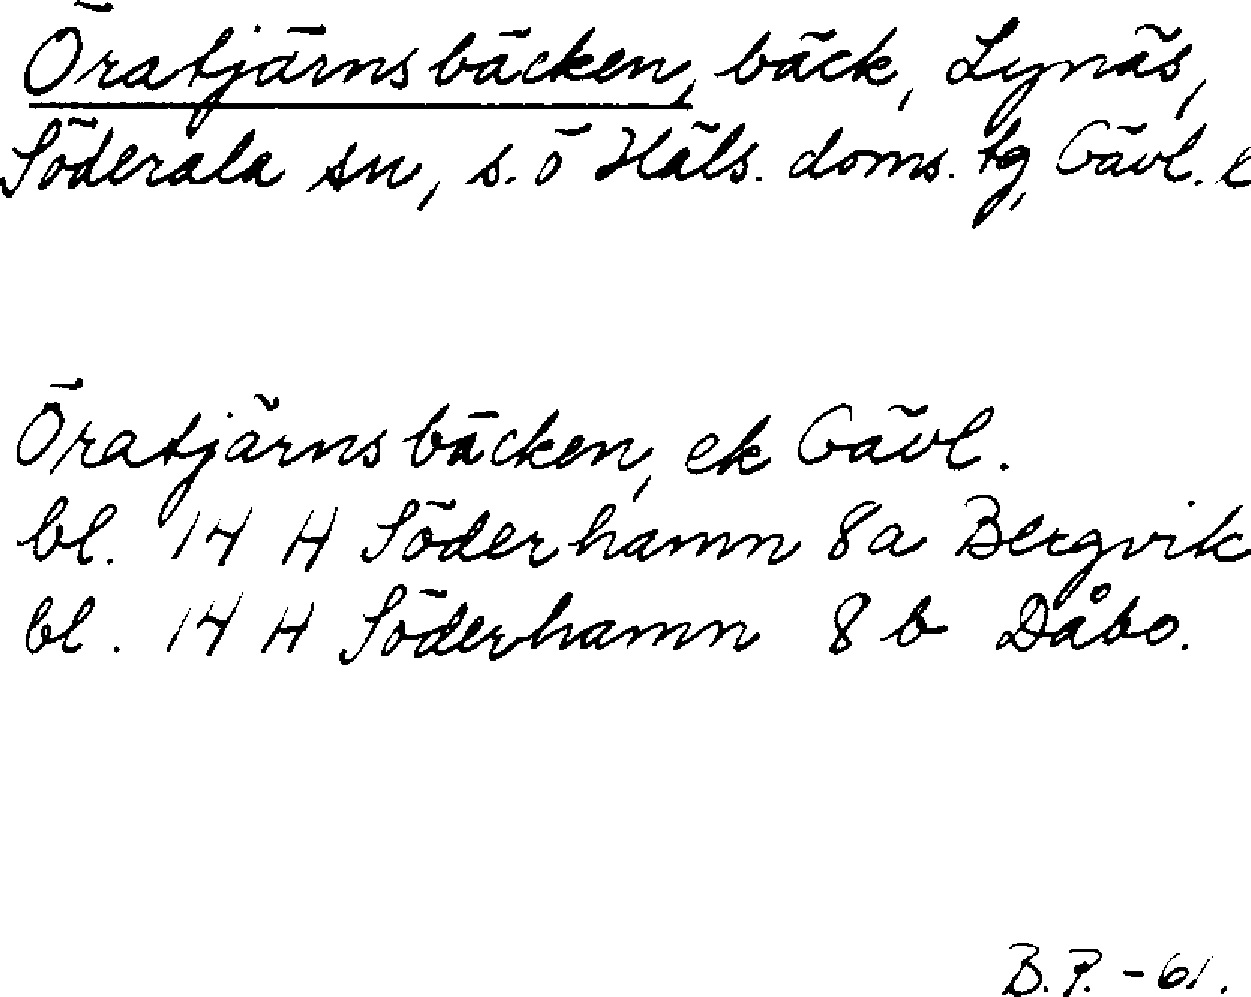 Öratjärnsbäcken, bäck, Lynäs,
Söderala sn, s. ö Häls. doms. tg, Gävl. l
Öratjärnsbäcken, ek Gävl.
bl. 14 H Söderhamn 8a Bergvik
bl. 14 H Söderhamn 8 b Dåbo.
B.P. - 61.